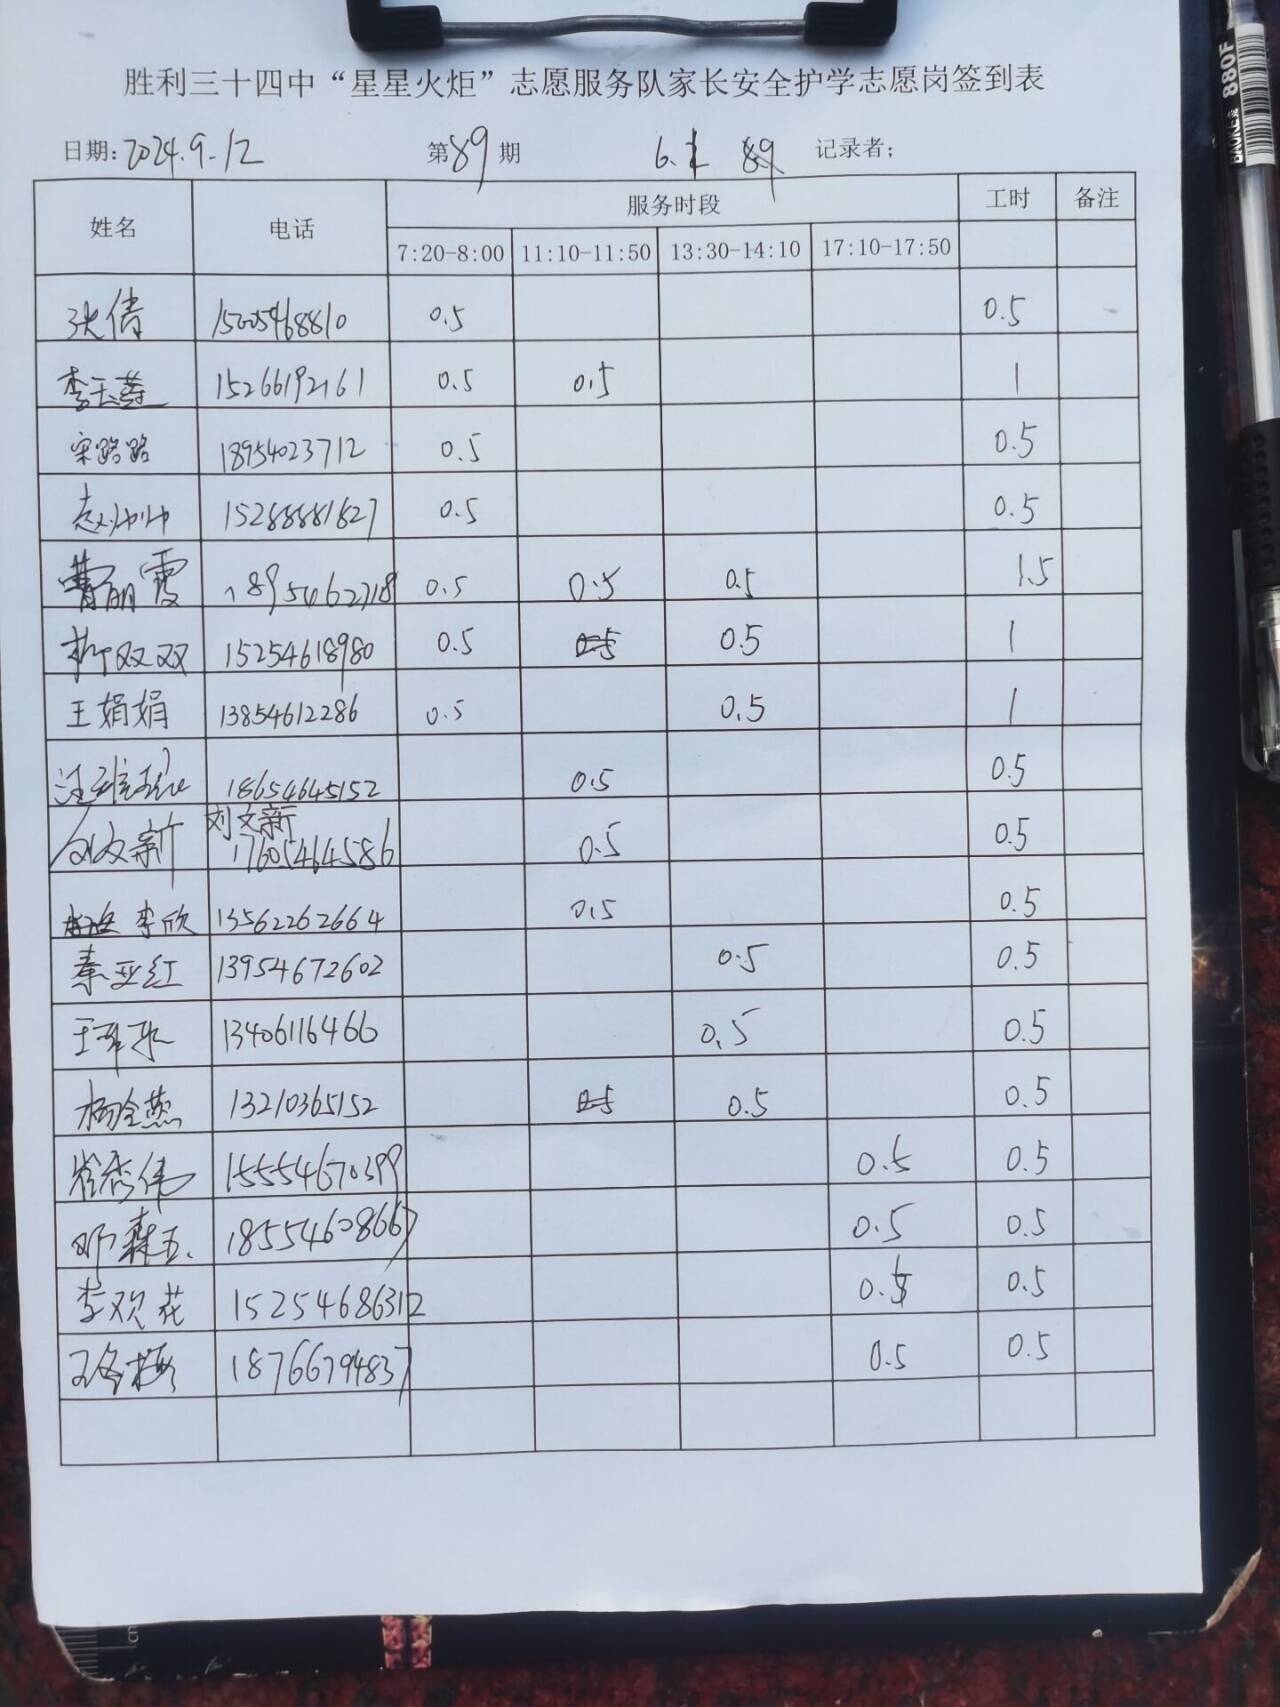 胜利三十四中“星星火炬”志愿服务队家长安全护学志愿岗签到表
日期:2024.9.12 第89期 6.1 89 记录者;
姓名 电话 服务时段 工时 备注
7:20-8:00 11:10-11:50 13:30-14:10 17:10-17:50
张倩 15005468810 0.5 0.5
李玉莲 15266192161 0.5 0.5 1
宋路路 18954023712 0.5 0.5
赵帅帅 15288881827 0.5 0.5
曹丽霞 18954662718 0.5 0.5 0.5 1.5
柳双双 15254618980 0.5 0.5 0.5 1
王娟娟 13854612286 0.5 0.5 1
18654645152 0.5 0.5
刘文新 刘文新 17605464586 0.5 0.5
李欣 13562262664 0.5 0.5
秦亚红 13954672602 0.5 0.5
13406116466 0.5 0.5
杨全燕 13210365152 0.5 0.5 0.5
崔秀伟 15554670399 0.5 0.5
邓森五 18554608667 0.5 0.5
李欢花 15254686312 0.5 0.5
王冬梅 18766794837 0.5 0.5
BAOKE 880F